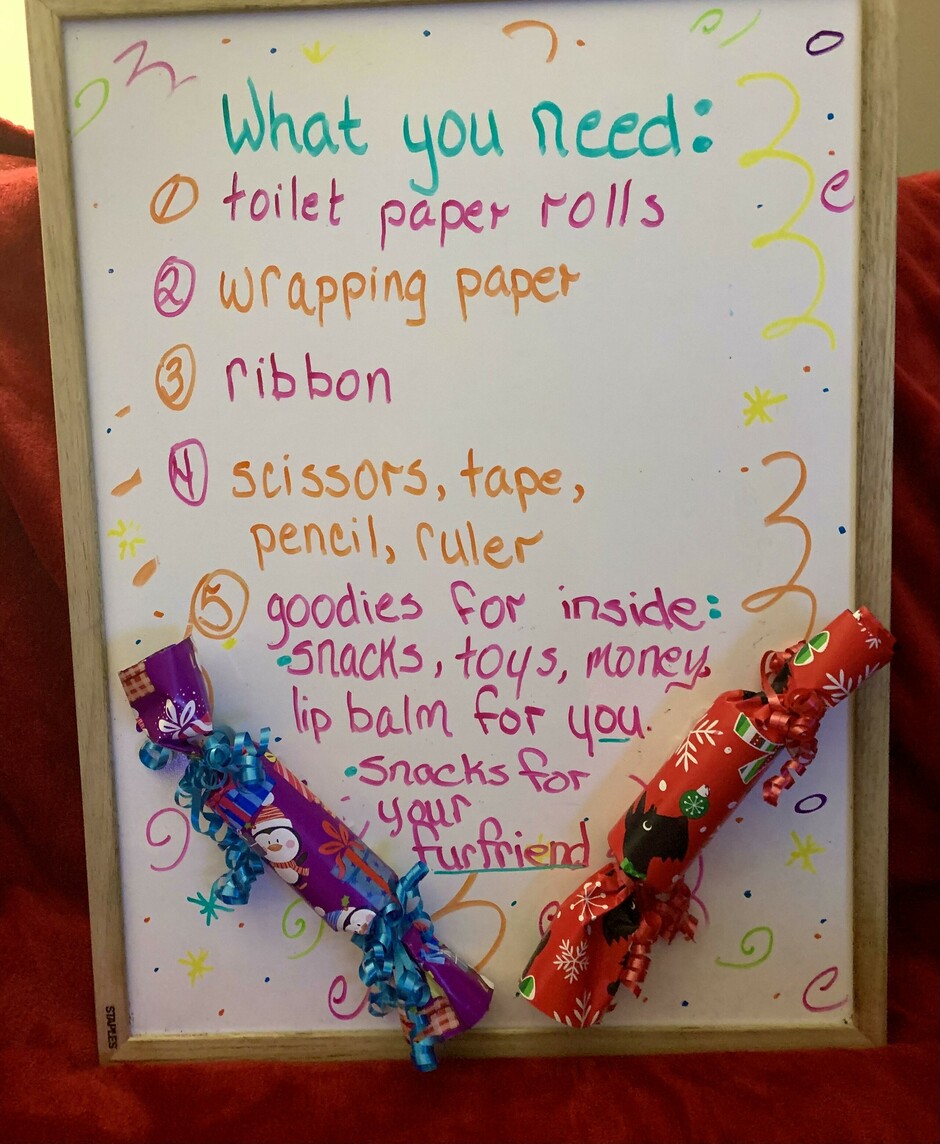 What you need:
1 toilet paper rolls
2 wrapping paper
3 ribbon
4 scissors, tape,
pencil, ruler
5 goodies for inside:
•snacks, toys, money,
lip balm for you.
•snacks for
your
furfriend
STAPLES